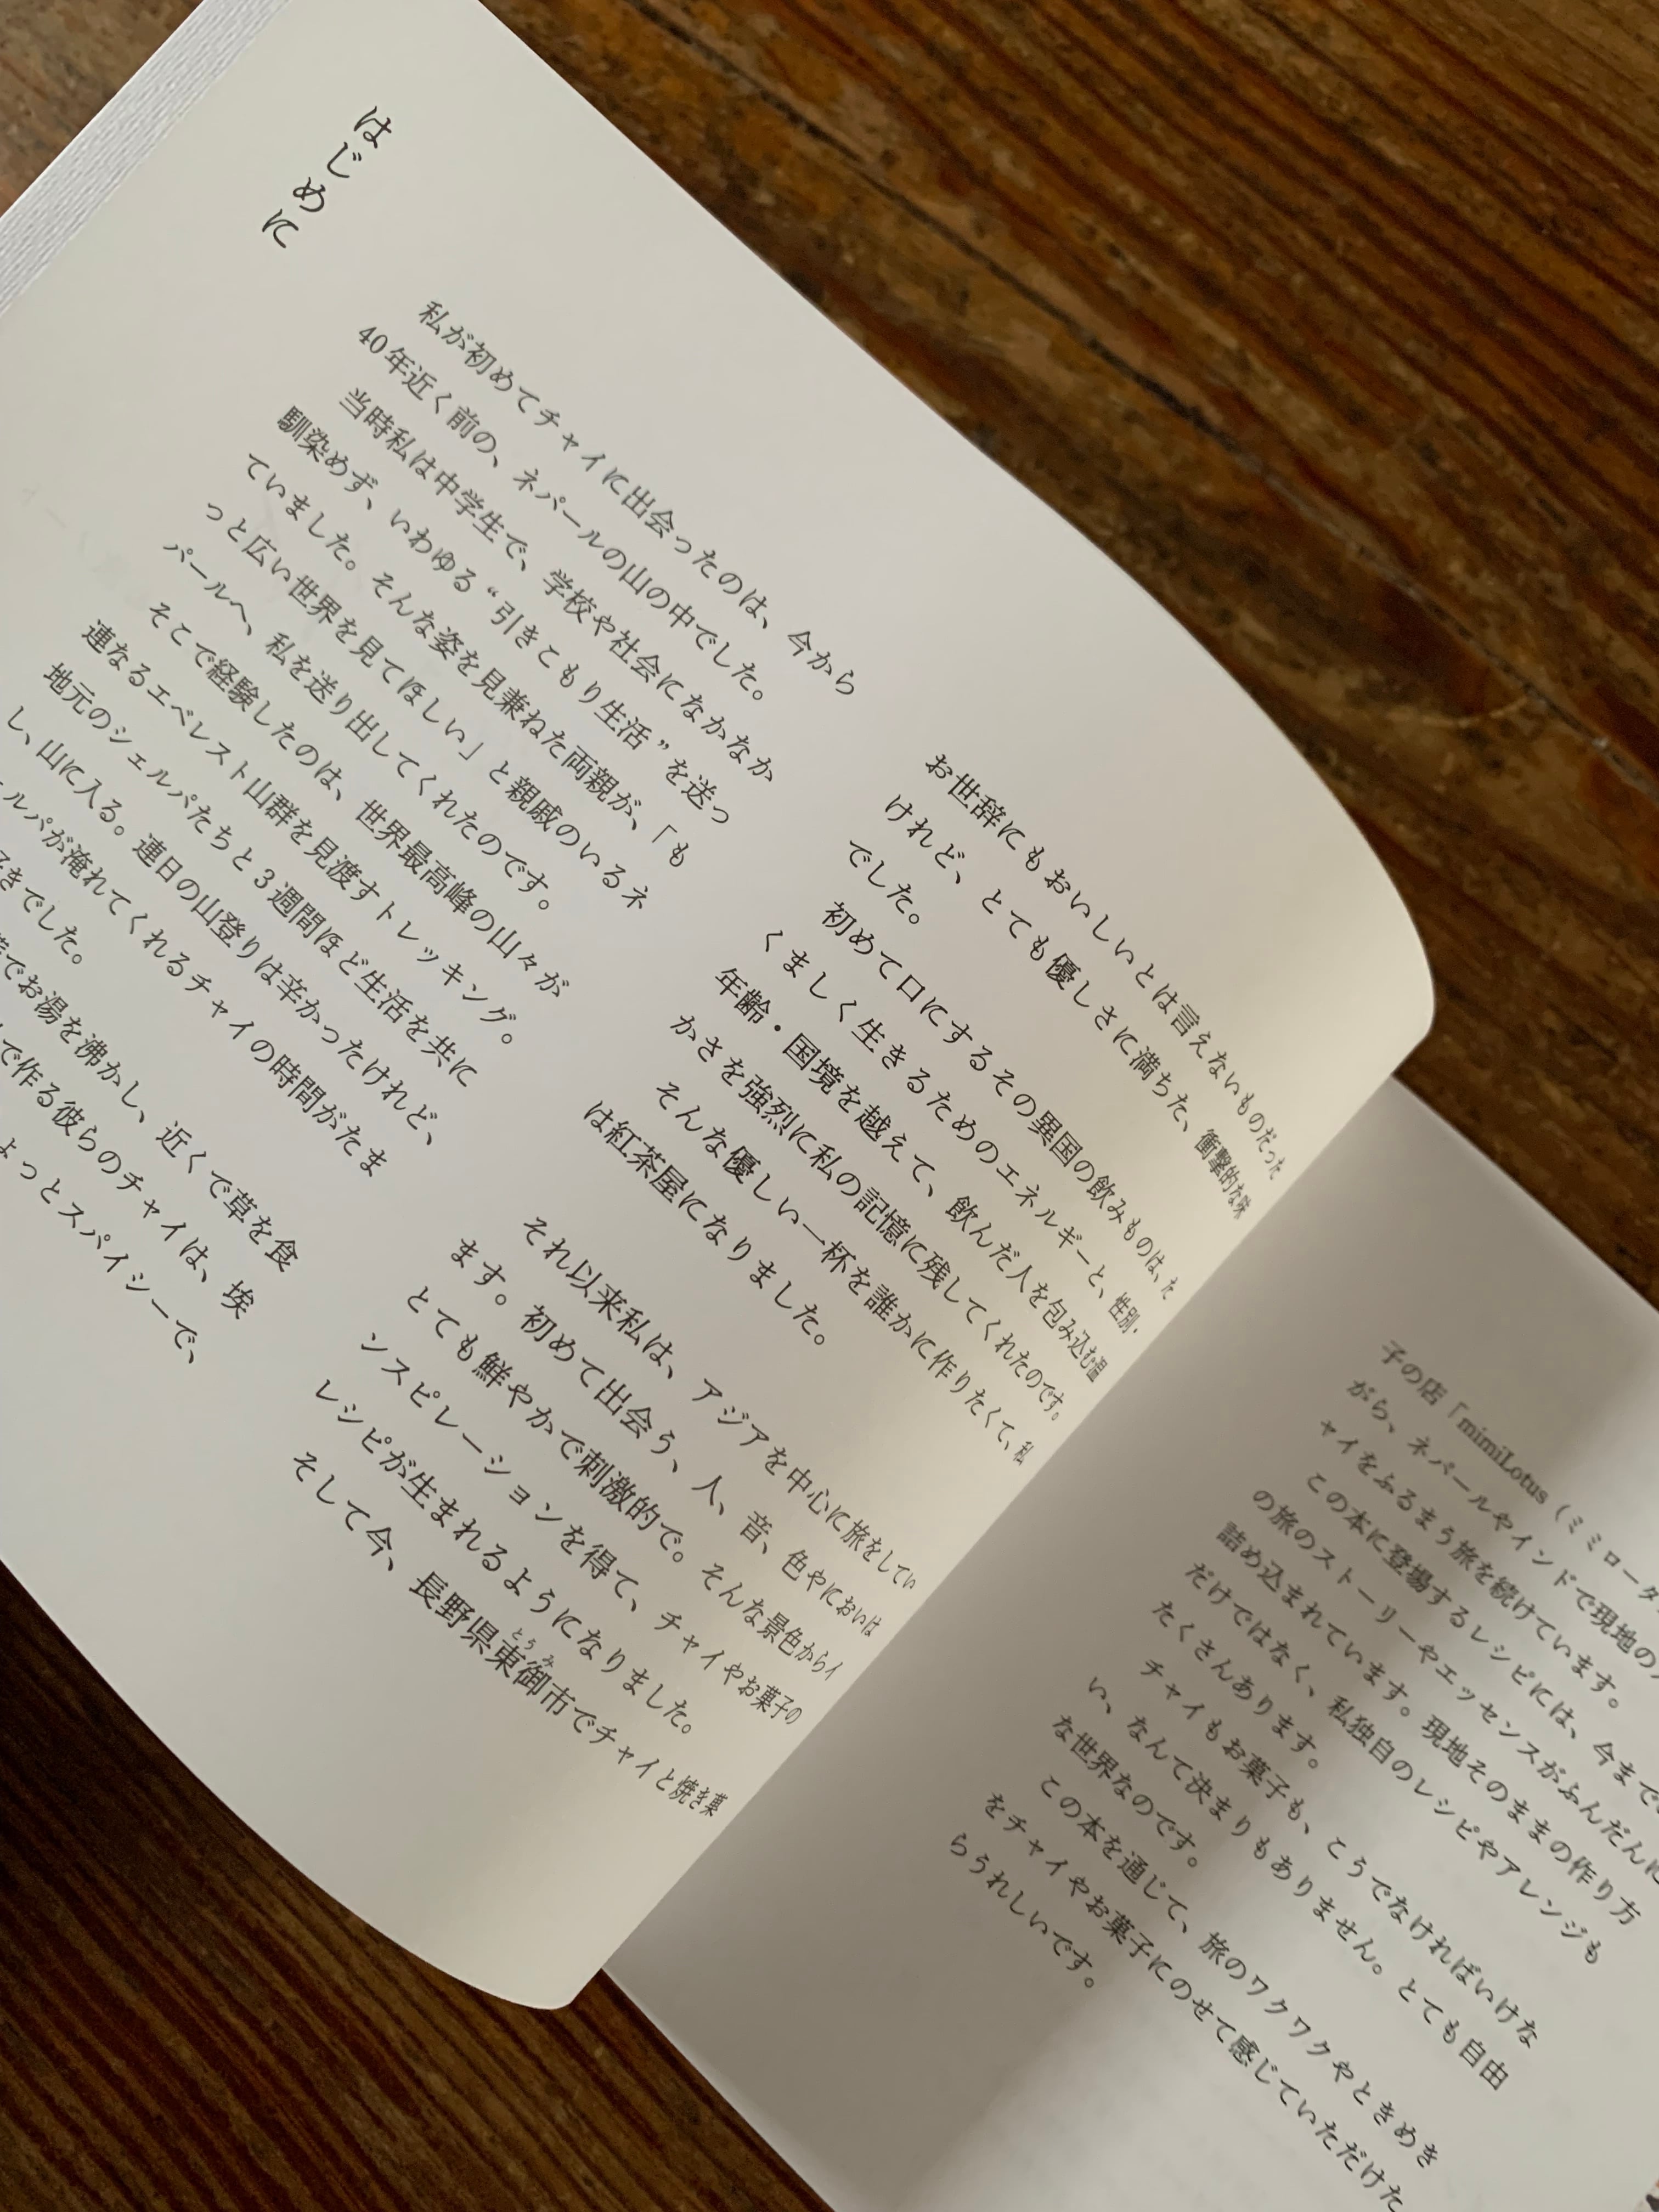 はじめに
私が初めてチャイに出会ったのは、今から
40年近く前の、ネパールの山の中でした。
当時私は中学生で、学校や社会になかなか
馴染めず、いわゆる“引きこもり生活”を送っ
ていました。そんな姿を見兼ねた両親が、「も
っと広い世界を見てほしい」と親戚のいるネ
パールへ、私を送り出してくれたのです。
そこで経験したのは、世界最高峰の山々が
連なるエベレスト山群を見渡すトレッキング。
地元のシェルパたちと3週間ほど生活を共に
し、山に入る。連日の山登りは辛かったけれど、
ェルパが淹れてくれるチャイの時間がたま
好きでした。
でお湯を沸かし、近くで草を食
で作る彼らのチャイは、埃
ょっとスパイシーで、
お世辞にもおいしいとは言えないものだった
けれど、とても優しさに満ちた、衝撃的な味
でした。
初めて口にするその異国の飲みものは、た
くましく生きるためのエネルギーと、性別・
年齢・国境を越えて、飲んだ人を包み込む温
かさを強烈に私の記憶に残してくれたのです。
そんな優しい一杯を誰かに作りたくて、私
は紅茶屋になりました。
それ以来私は、アジアを中心に旅をしてい
ます。初めて出会う、人、音、色やにおいは
とても鮮やかで刺激的で。そんな景色からイ
ンスピレーションを得て、チャイやお菓子の
レシピが生まれるようになりました。
そして今、長野県東御市でチャイと焼き菓
とうみ
子の店「mimiLotus（ミミロータ
がら、ネパールやインドで現地の
ャイをふるまう旅を続けています。
この本に登場するレシピには、今まで
の旅のストーリーやエッセンスがふんだんに
詰め込まれています。現地そのままの作り方
だけではなく、私独自のレシピやアレンジも
たくさんあります。
チャイもお菓子も、こうでなければいけな
い、なんて決まりもありません。とても自由
な世界なのです。
この本を通じて、旅のワクワクやときめき
をチャイやお菓子にのせて感じていただけた
らうれしいです。